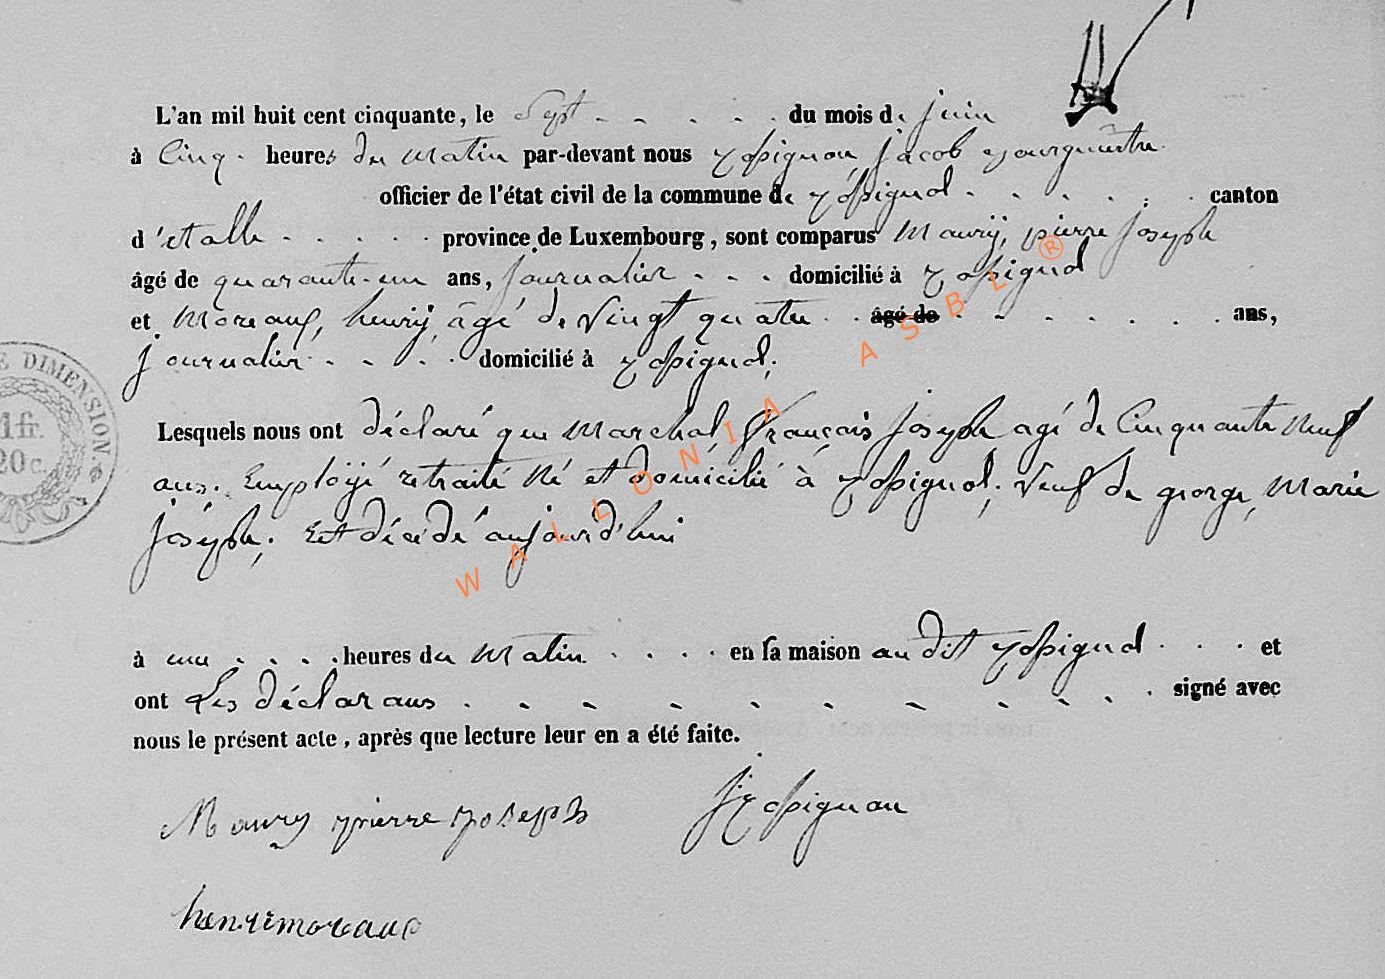 L'an mil huit cent cinquante, le Sept - - - - - du mois de juin
à Cinq - heures du Matin par-devant nous Rossignon, Jacob Bourgmestre
officier de l'état civil de la commune de Rossignol - - - - - canton
d'étalle - - - - - province de Luxembourg, sont comparus Maury, pierre Joseph
âgé de quarante-un ans, Journalier - - - domicilié à Rossignol
et Moreaux, henry, âgé de Vingt quatre - - âgé de - - - - - - - ans,
Journalier - - - - domicilié à Rossignol,
Lesquels nous ont déclaré que Marchal, François Joseph agé de Cinquante Neuf
ans. Employé retraité Né et domicilié à Rossignol, Veuf de george, Marie
Joséph, Est décédé aujourd'hui
à une - - - - heures du Matin - - - - en sa maison au dit Rossignol - - - et
ont Les déclarans - - - - - - - - - - signé avec
nous le présent acte, après que lecture leur en a été faite.
Maury pierre joseph J Rossignon
henri moreaux
E DIMENSION
1 fr.
20 c.
WALLONIA ASBL ®